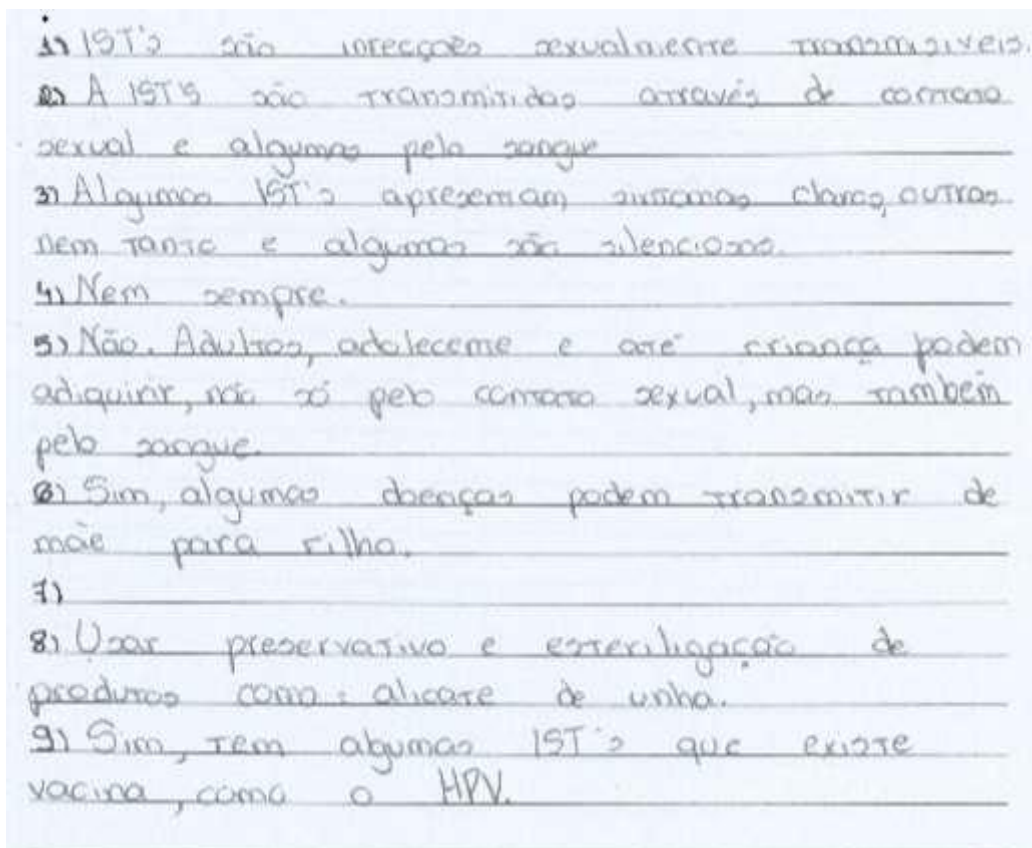 1) IST's são infecções sexualmente transmissíveis.
2) A IST'S são transmitidas através de contato
sexual e algumas pelo sangue
3) Algumas IST's apresentam sintomas claros, outras
nem tanto e algumas são silenciosas.
4) Nem sempre.
5) Não. Adultos, adolecente e até criança podem
adiquirir, não só pelo contato sexual, mas também
pelo sangue.
6) Sim, algumas doenças podem transmitir de
mãe para filho.
7)
8) Usar preservativo e esterilização de
produtos como: alicate de unha.
9) Sim, tem algumas IST's que existe
vacina, como o HPV.